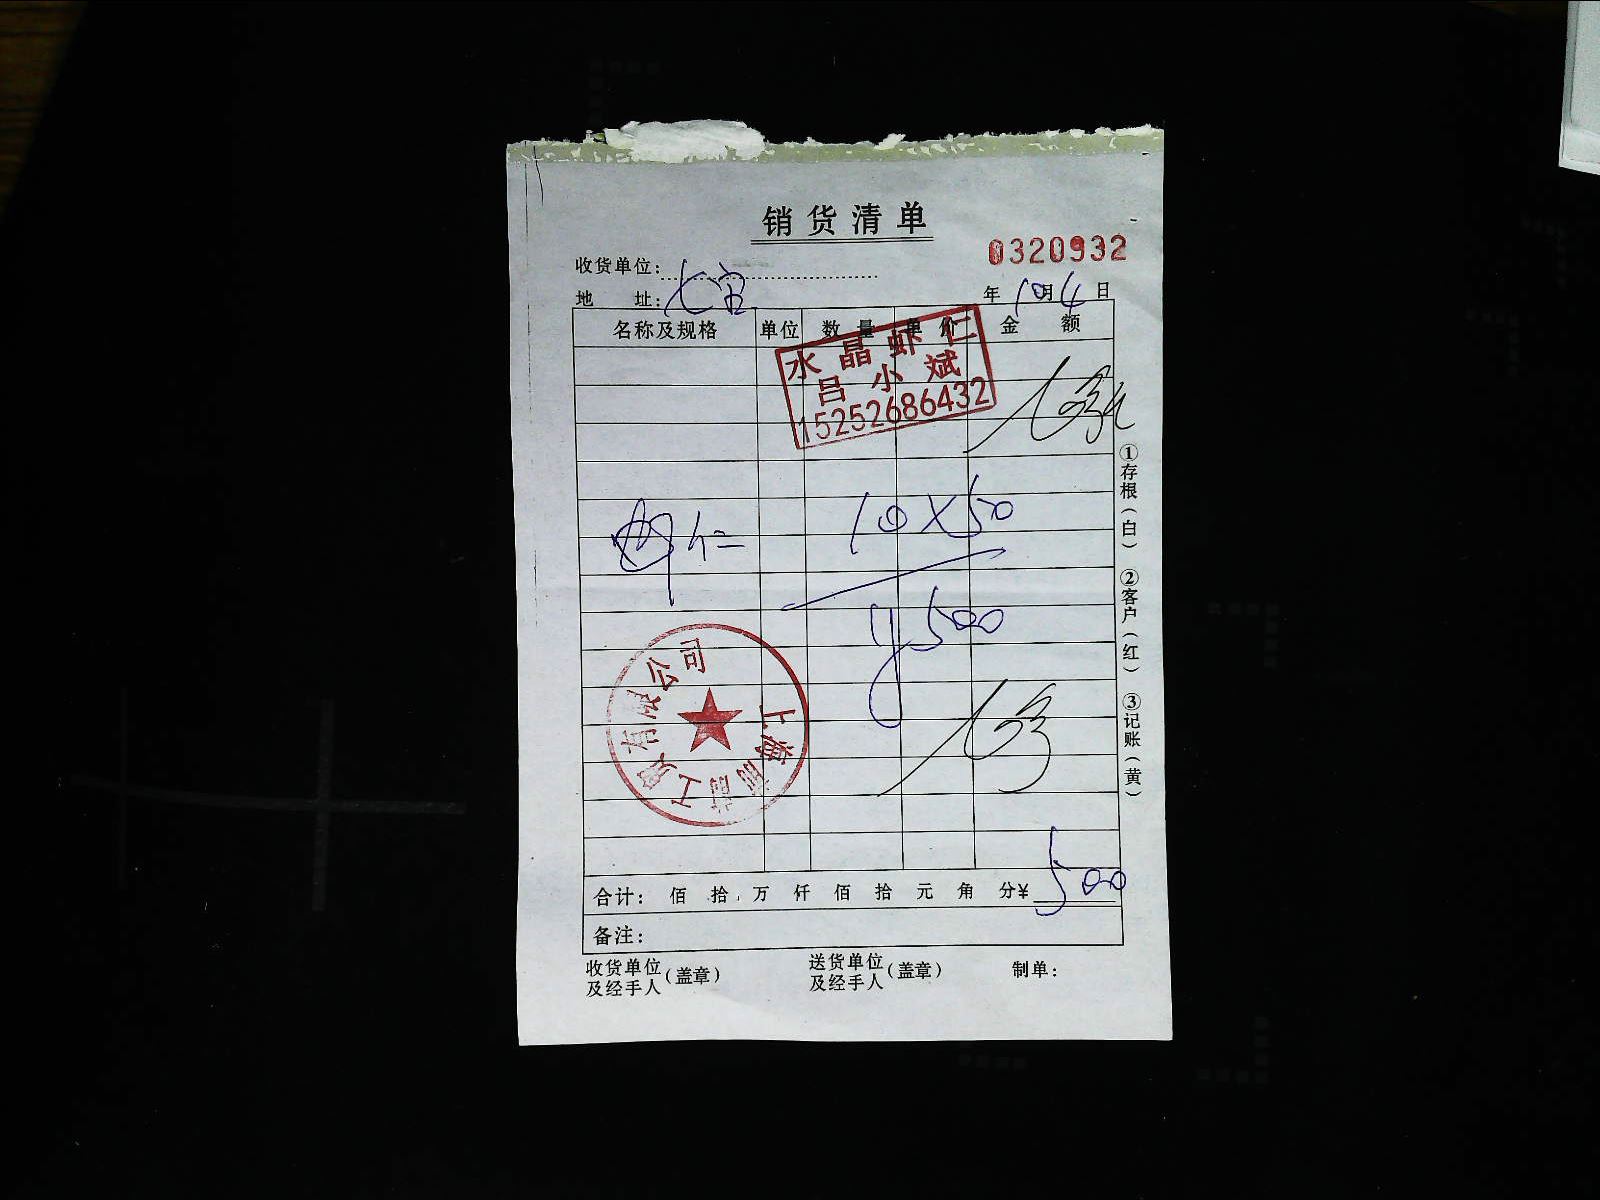 销货清单
0320932
收货单位:
地 址: 七宝
年 10月 4 日
名称及规格 单位 数量 单价 金额
水晶虾仁
吕小斌
15252686432
虾仁 10×50
¥500
上海 工贸有限公司
合计: 佰 拾 万 仟 佰 拾 元 角 分¥ 500
备注:
收货单位及经手人(盖章) 送货单位及经手人(盖章) 制单:
①存根(白) ②客户(红) ③记账(黄)